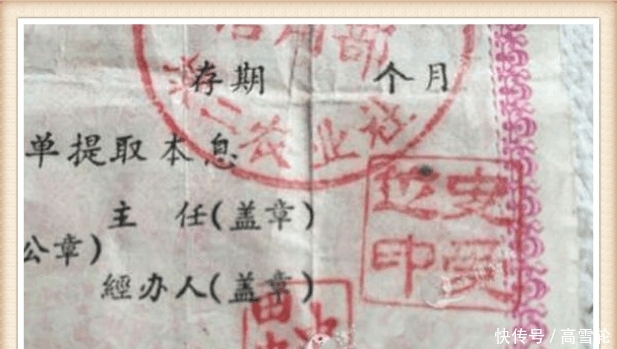 信用部
第二农业社
存期 个月
单提取本息
主 任(盖章)
公章)
經办人(盖章)
快传号/高雪轮